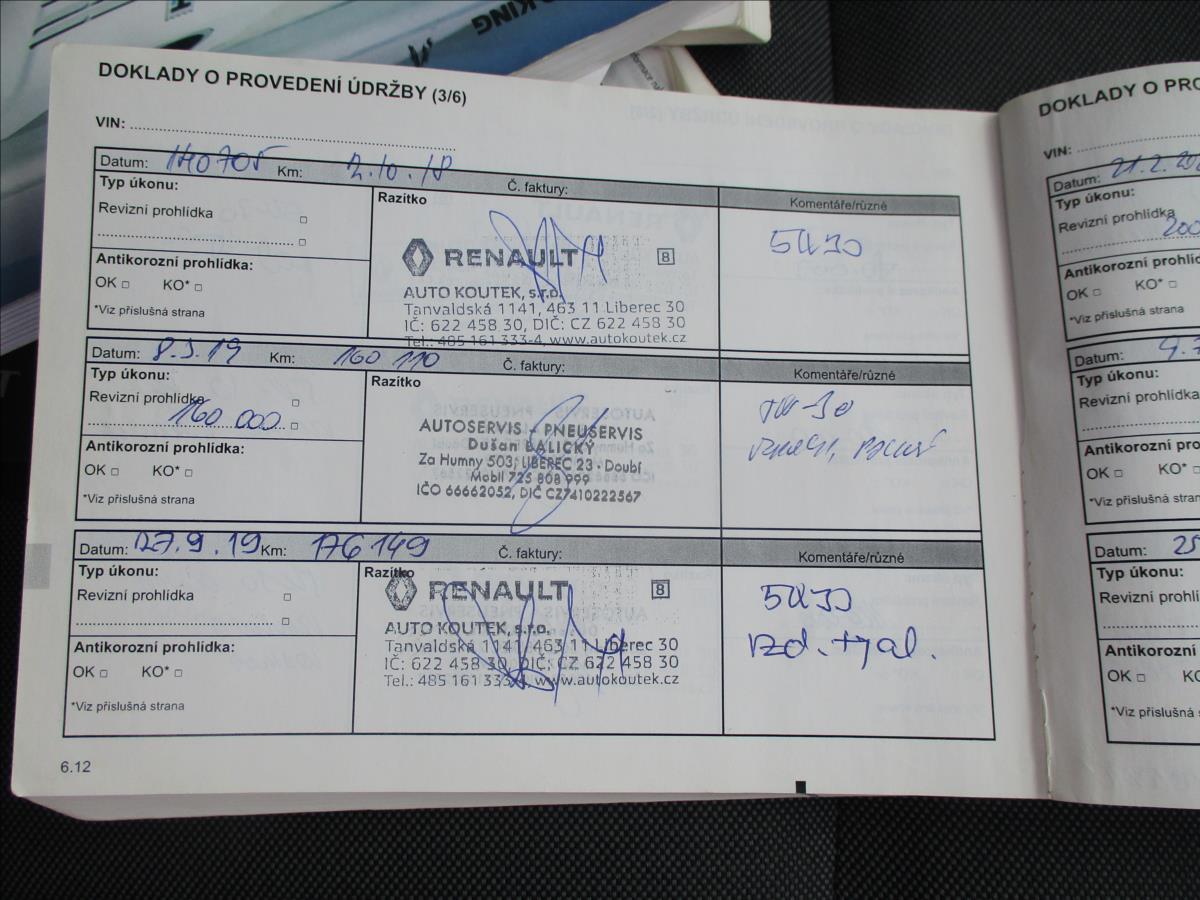 KING
DOKLADY O PROVEDENÍ ÚDRŽBY (3/6)
VIN:
Datum: 140705 Km: 2.10.18 Č. faktury:
Typ úkonu:
Revizní prohlídka
Antikorozní prohlídka:
OK KO*
*Viz příslušná strana
Razítko
RENAULT 8
AUTO KOUTEK, s.r.o.
Tanvaldská 1141, 463 11 Liberec 30
IČ: 622 458 30, DIČ: CZ 622 458 30
Tel.: 485 161 333-4, www.autokoutek.cz
Komentáře/různé
5W30
Datum: 8.3.19 Km: 160 110 Č. faktury:
Typ úkonu:
Revizní prohlídka
160 000
Antikorozní prohlídka:
OK KO*
*Viz příslušná strana
Razítko
AUTOSERVIS - PNEUSERVIS
Dušan BALICKÝ
Za Humny 503, LIBEREC 23 - Doubí
Mobil 725 808 999
IČO 66662052, DIČ CZ7410222567
Komentáře/různé
5W-30
Datum: 27.9.19 Km: 176149 Č. faktury:
Typ úkonu:
Revizní prohlídka
Antikorozní prohlídka:
OK KO*
*Viz příslušná strana
Razítko
RENAULT 8
AUTO KOUTEK, s.r.o.
Tanvaldská 1141, 463 11 Liberec 30
IČ: 622 458 30, DIČ: CZ 622 458 30
Tel.: 485 161 333-4, www.autokoutek.cz
Komentáře/různé
5W30
vzd. + pal.
6.12
DOKLADY O PRO
VIN:
Datum: 21.2.202
Typ úkonu:
Revizní prohlídka
200
Antikorozní prohlíd
OK KO*
*Viz příslušná strana
Datum: 9.7
Typ úkonu:
Revizní prohlídk
Antikorozní pro
OK KO*
*Viz příslušná stran
Datum: 25
Typ úkonu:
Revizní prohlí
Antikorozní
OK KO
*Viz příslušná